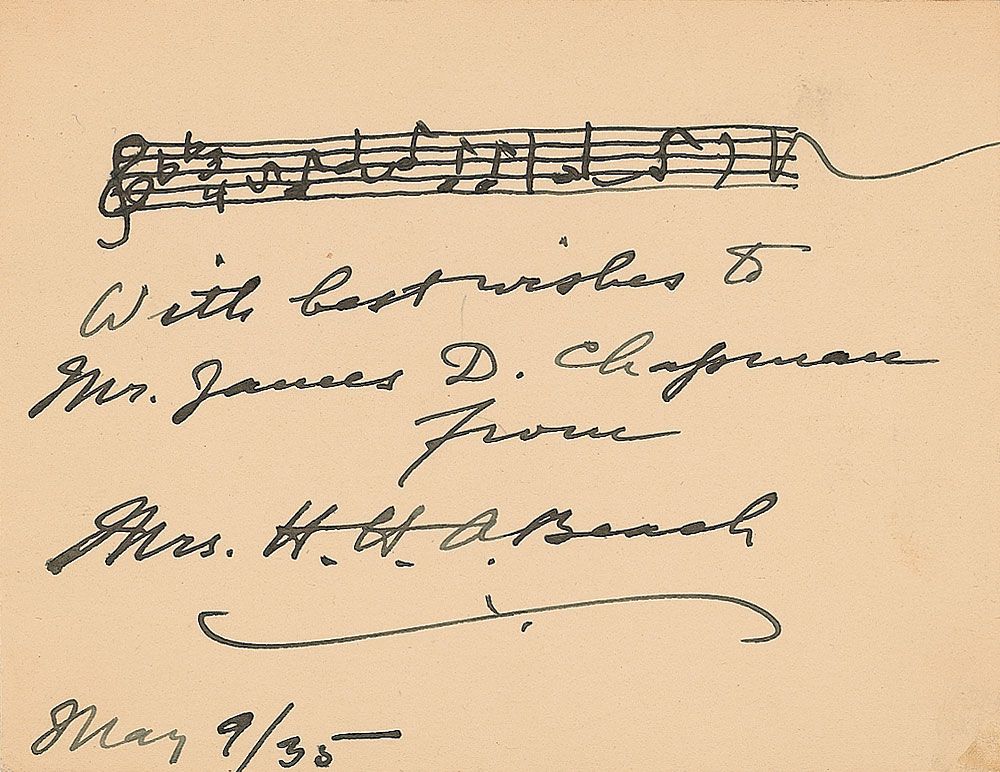 3
4
With best wishes to
Mr. James D. Chapman
from
Mrs. H. H. A. Beach
May 9/35